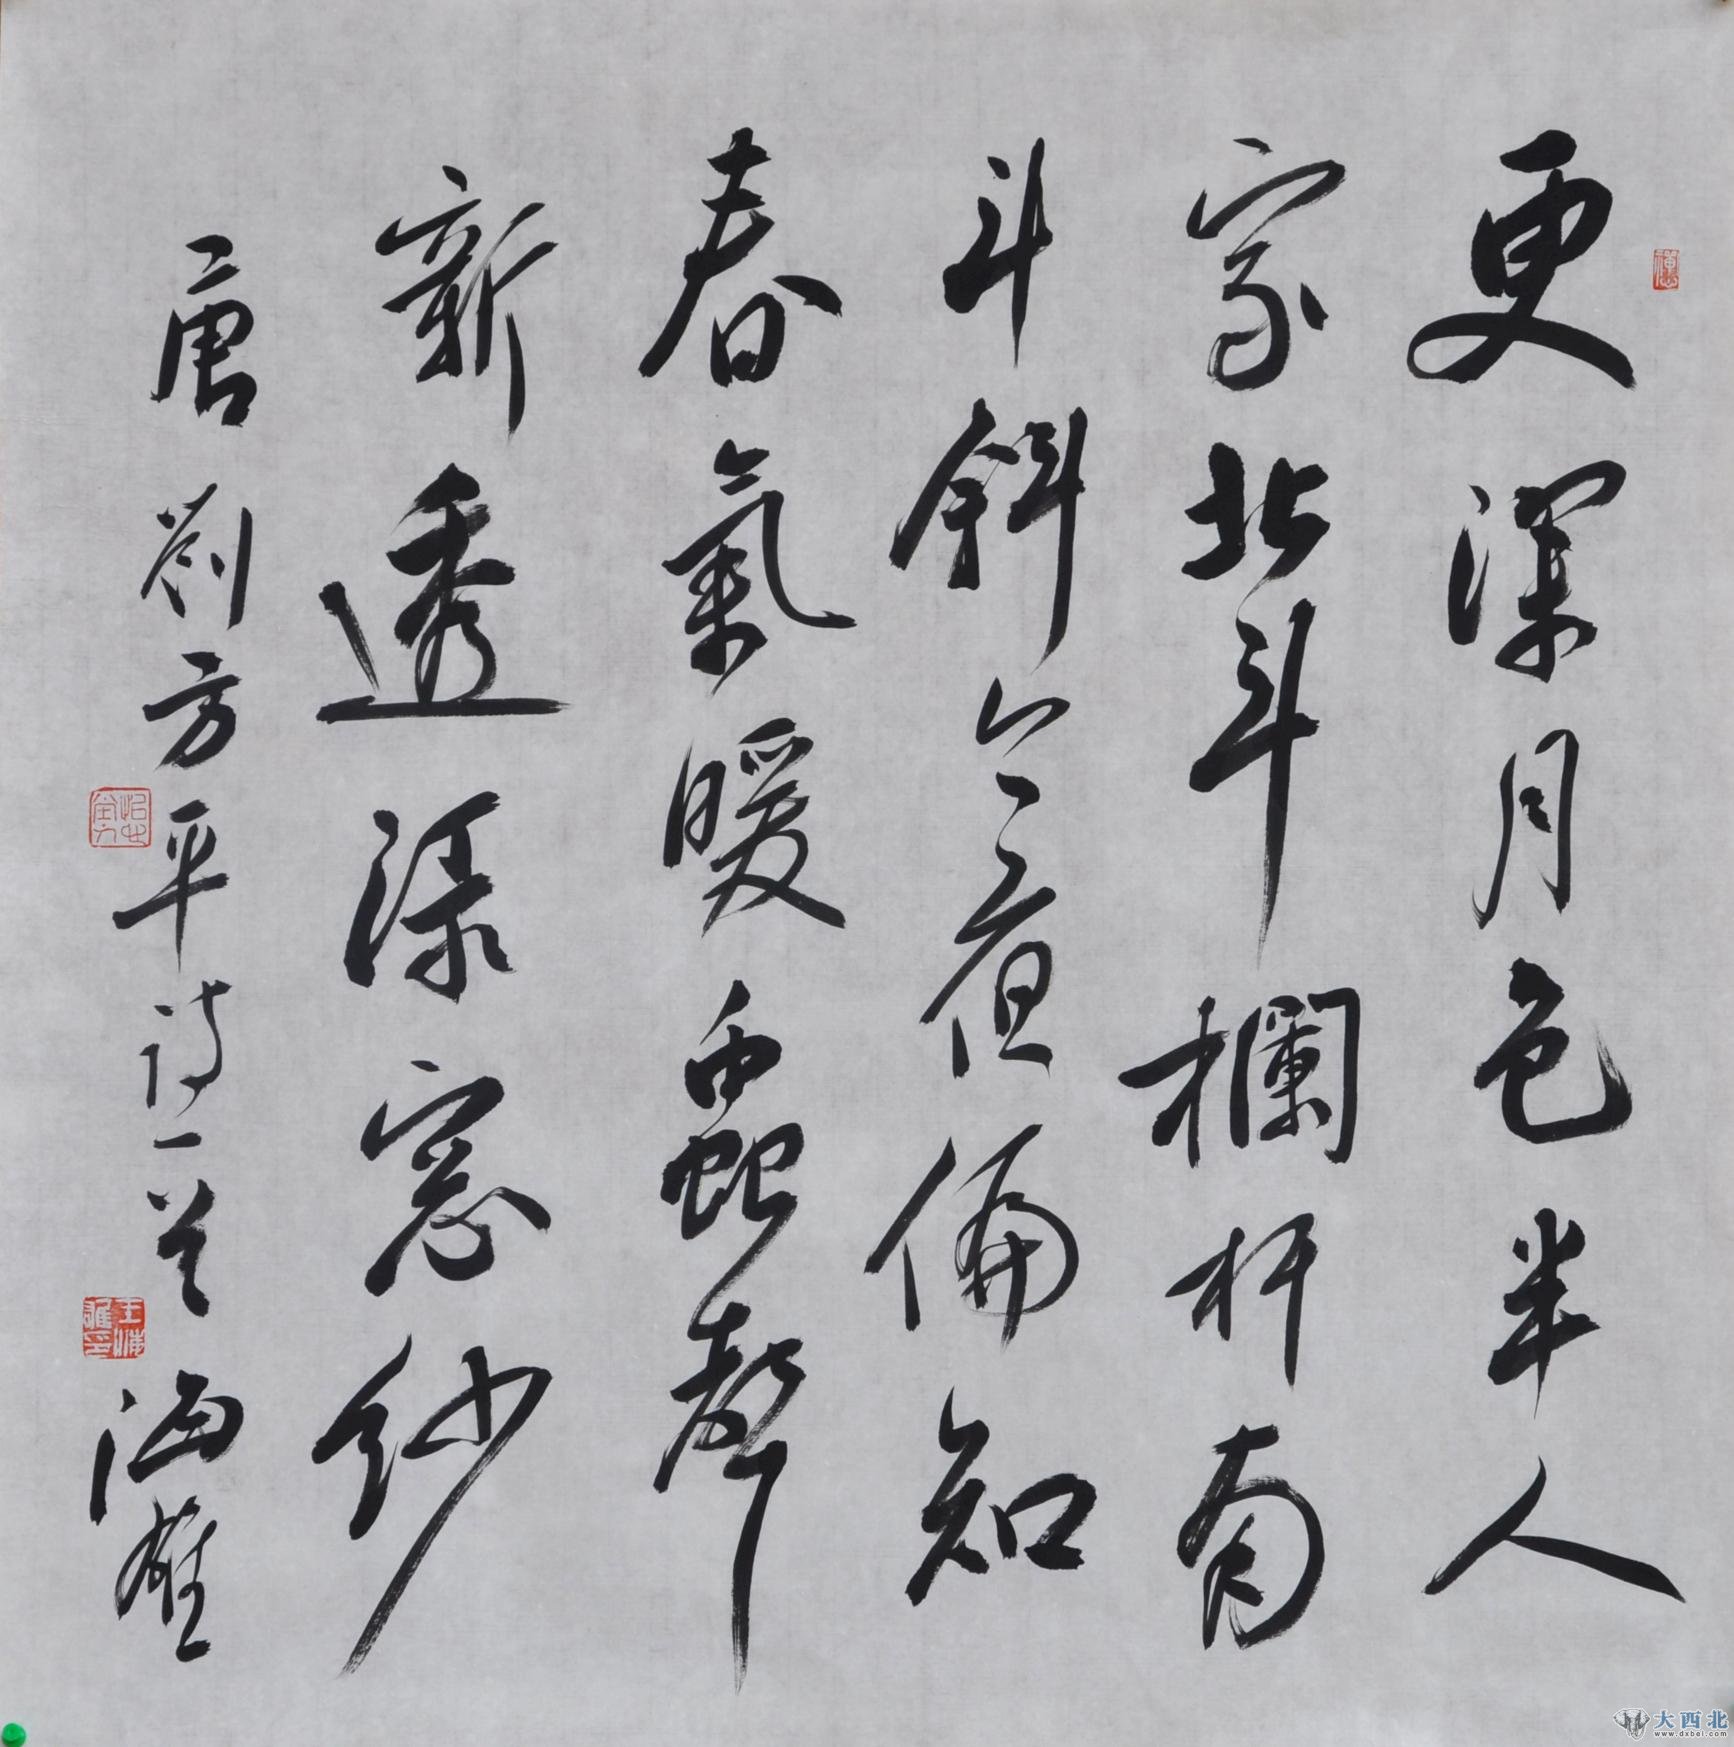 更深月色半人
家北斗欄杆南
斗斜今夜偏知
春氣暖蟲聲
新透緑窓紗
唐劉方平詩一首 海雄
大西北
www.dxbei.com